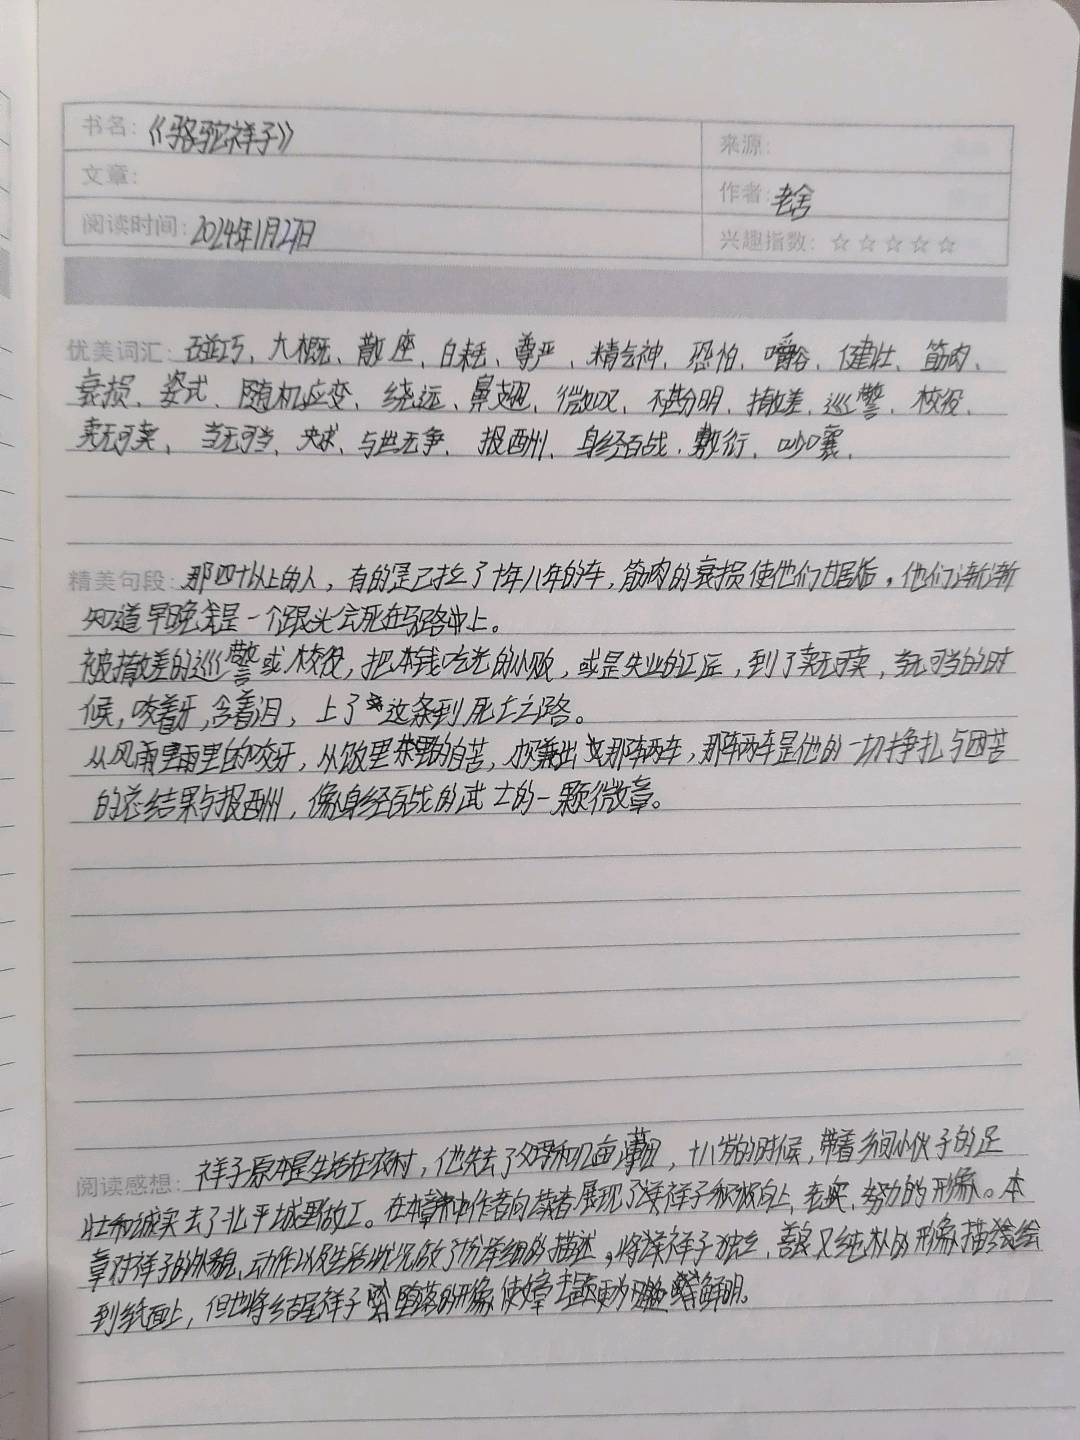 书名:《骆驼祥子》
来源:
文章:
作者:老舍
阅读时间:2024年1月27日
兴趣指数:☆☆☆☆☆
优美词汇:碰巧、大概、散座、白耗、尊严、精气神、恐怕、嚼谷、健壮、筋肉、
衰损、姿式、随机应变、绕远、鼻翅、微叹、不甚分明、撤差、巡警、校役、
卖无可卖、当无可当、央求、与世无争、报酬、身经百战、敷衍、吵嚷、
精美句段:那四十以上的人,有的是已拉了十年八年的车,筋肉的衰损使他们甘居人后,他们渐渐
知道早晚是一个跟头会死在马路中上。
被撤差的巡警或校役,把本钱吃光的小贩,或是失业的工匠,到了卖无可卖,当无可当的时
候,咬着牙,含着泪,上了这条到死亡之路。
从风里雨里的咬牙,从饭里茶里的自苦,才赚出那辆车,那辆车是他的一切挣扎与困苦
的总结果与报酬,像身经百战的武士的一颗徽章。
阅读感想:祥子原本是生活在农村,他失去了父母和几亩薄田,十八岁的时候,带着乡间小伙子的足
壮和诚实去了北平城里做工。在本章中作者向读者展现了祥子积极向上,老实,努力的形象。本
章对祥子的外貌、动作以及生活状况做了份详细的描述,将祥子独立,善良又纯朴的形象描绘
到纸面上,但也将结尾祥子堕落的形象使文章主题更为鲜明。